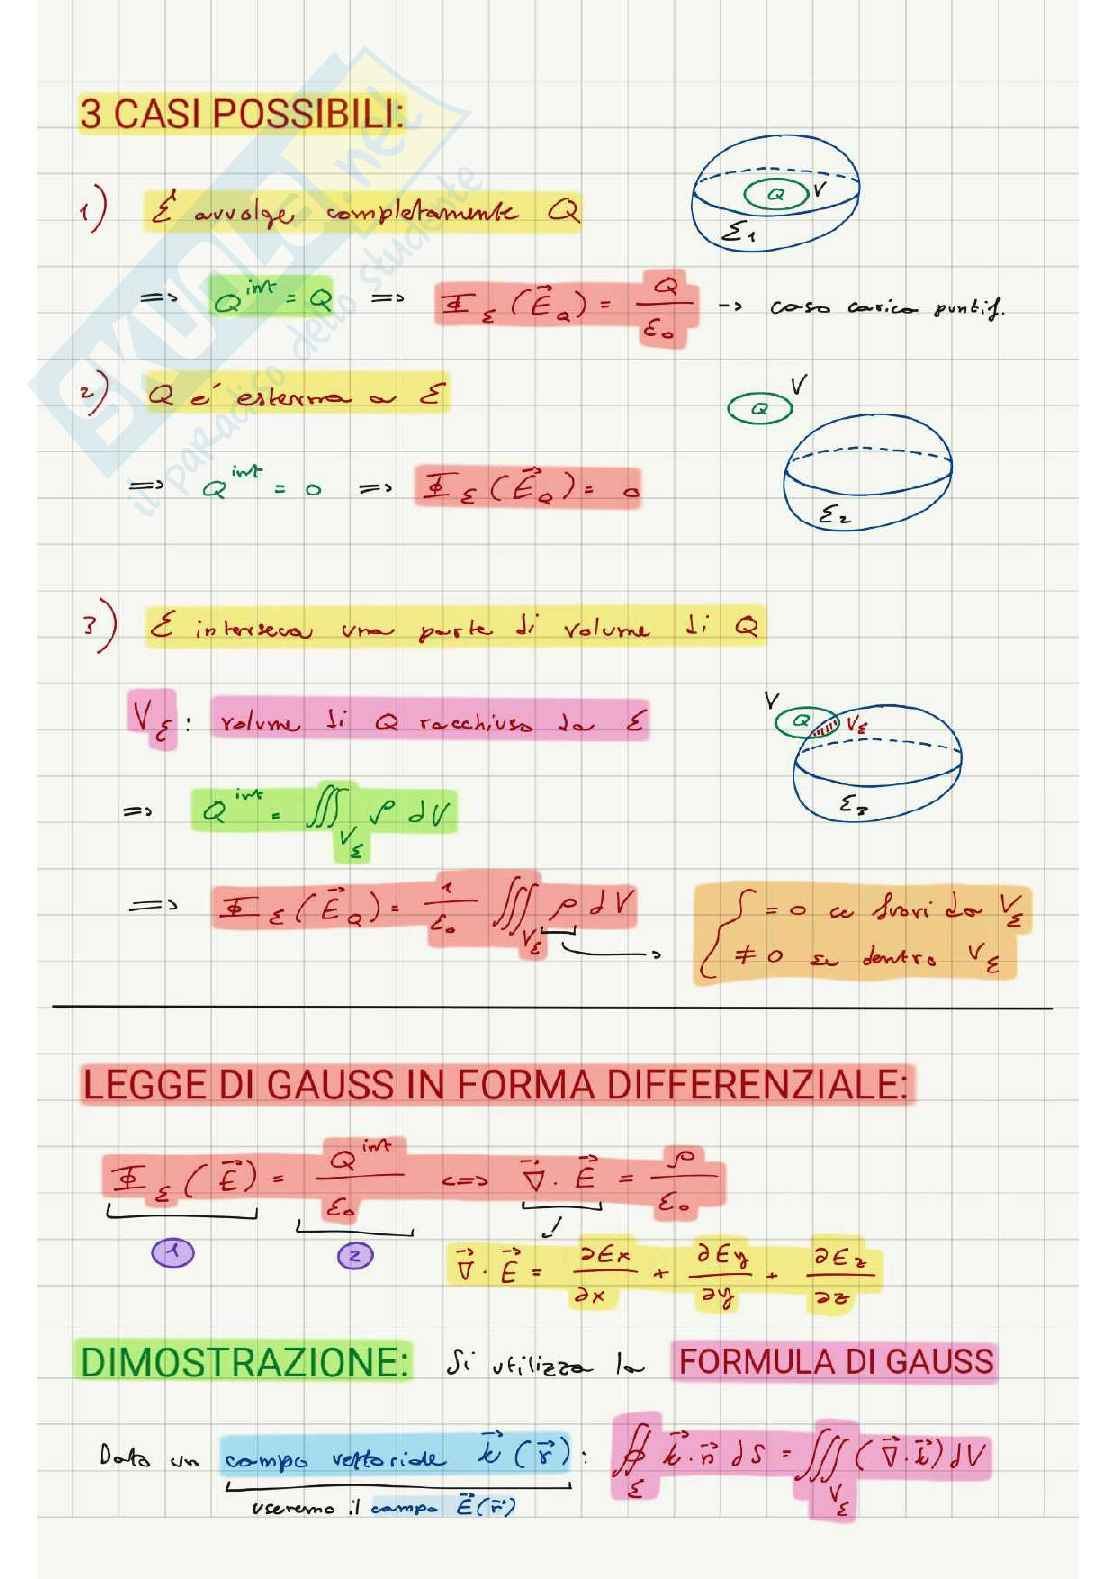 3 CASI POSSIBILI:
1) Σ avvolge completamente Q
Q V
Σ₁
=> Q^int = Q => Φ_Σ(E⃗_Q) = Q/ε₀ -> caso carica puntif.
2) Q e' esterna a Σ
V
Q
=> Q^int = 0 => Φ_Σ(E⃗_Q) = 0
Σ₂
3) Σ interseca una parte di volume di Q
V_Σ : volume di Q racchiuso da Σ
V
Q V_Σ
Σ₃
=> Q^int = ∭_{V_Σ} ρ dV
=> Φ_Σ(E⃗_Q) = 1/ε₀ ∭_{V_Σ} ρ dV -> { = 0 se fuori da V_Σ
≠ 0 se dentro V_Σ
LEGGE DI GAUSS IN FORMA DIFFERENZIALE:
Φ_Σ(E⃗) = Q^int/ε₀ <=> ∇⃗·E⃗ = ρ/ε₀
1 2
∇⃗·E⃗ = ∂Ex/∂x + ∂Ey/∂y + ∂Ez/∂z
DIMOSTRAZIONE: Si utilizza la FORMULA DI GAUSS
Dato un campo vettoriale k⃗(r⃗) : ∯_Σ k⃗·n⃗ dS = ∭_{V_Σ} (∇⃗·k⃗) dV
useremo il campo E⃗(r⃗)
SKUOLA.net
il paradiso dello studente